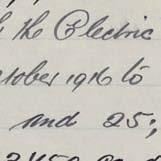 the Electric
October 1916 to
and 25;